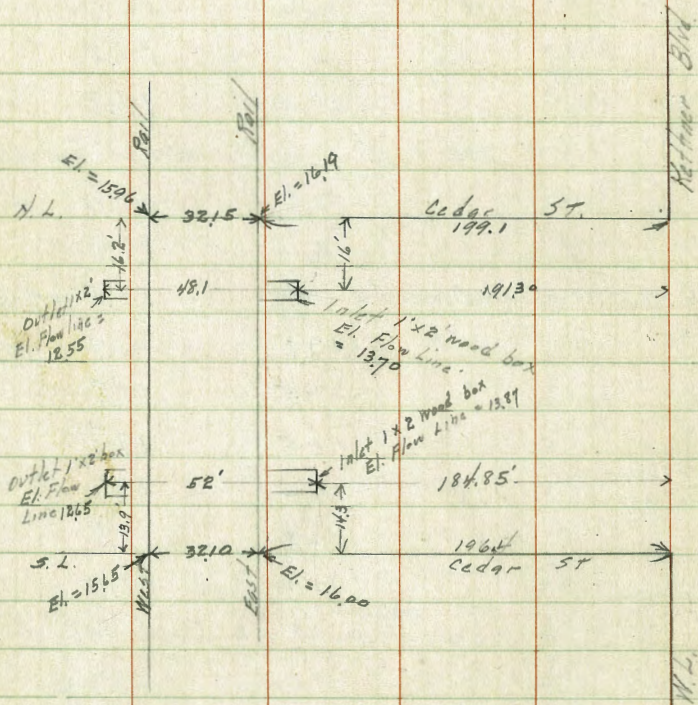 Kettner Blvd
Rail
Rail
El. = 15.96
El. = 16.19
N. L.
32.15
Cedar ST.
199.1
16.2'
16'
48.1
191.30
Outlet 1'x2'
El. Flow line =
12.55
Inlet 1'x2' wood box
El. Flow Line.
= 13.70
Inlet 1x2 wood box
El. Flow Line = 13.87
Outlet 1'x2' box
El. Flow
Line 12.65
52'
184.85'
13.9'
14.3'
S. L.
32.10
196.4
Cedar ST
El. = 15.65
West
East
El. = 16.00
W. L.